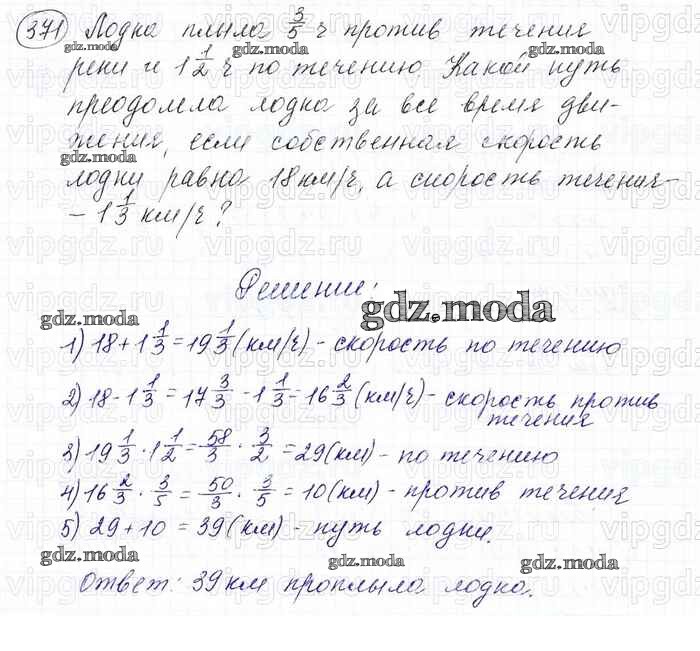 371 Лодка плыла 3/5 ч против течения
gdz.moda
реки и 1 1/2 ч по течению. Какой путь
преодолела лодка за все время дви-
жения, если собственная скорость
gdz.moda
лодки равна 18 км/ч, а скорость течения -
- 1 1/3 км/ч?
Решение:
gdz.moda
1) 18 + 1 1/3 = 19 1/3 (км/ч) - скорость по течению
2) 18 - 1 1/3 = 17 3/3 - 1 1/3 = 16 2/3 (км/ч) - скорость против
течения
3) 19 1/3 · 1 1/2 = 58/3 · 3/2 = 29 (км) - по течению
gdz.moda
4) 16 2/3 · 3/5 = 50/3 · 3/5 = 10 (км) - против течения
5) 29 + 10 = 39 (км) - путь лодки.
gdz.moda
Ответ: 39 км проплыла лодка.
vipgdz.ru